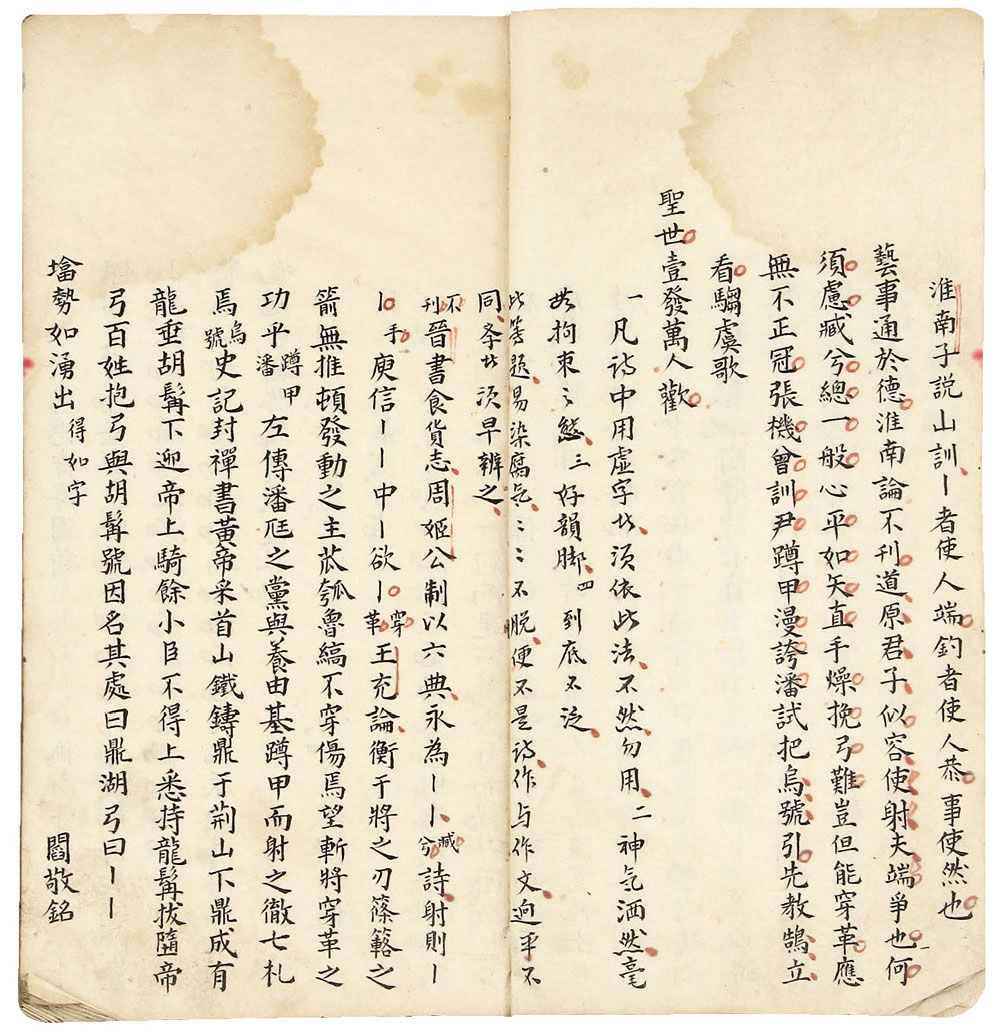 淮南子說山訓丨者使人端釣者使人恭事使然也
藝事通於德淮南論不刊道原君子似容使射夫端爭也何
須慮臧兮總一般心平如矢直手燥挽弓難豈但能穿革應
無不正冠張機曾訓尹蹲甲漫誇潘試把烏號引先教鵠立
看騶虞歌
聖世壹發萬人歡
一凡詩中用虛字必須依此法不然勿用二神氣洒然毫
無拘束之態三好韻脚四到底不泛
此等題易染腐氣腐氣不脫便不是詩作与作文迥乎不
同
不刊晉書食貨志周姬公制以六典永為丨丨臧兮詩射則丨
丨手丨庾信丨丨中丨欲丨穿革王充論衡干將之刃篠簵之
箭無推頓發動之主苽瓠魯縞不穿傷焉望斬將穿革之
功乎蹲甲潘左傳潘尫之黨與養由基蹲甲而射之徹七札
焉烏號史記封禪書黃帝采首山鐵鑄鼎于荊山下鼎成有
龍垂胡髯下迎帝上騎餘小臣不得上悉持龍髯拔隨帝
弓百姓抱弓與胡髯號因名其處曰鼎湖弓曰丨丨
㙮勢如湧出得如字 閻敬銘